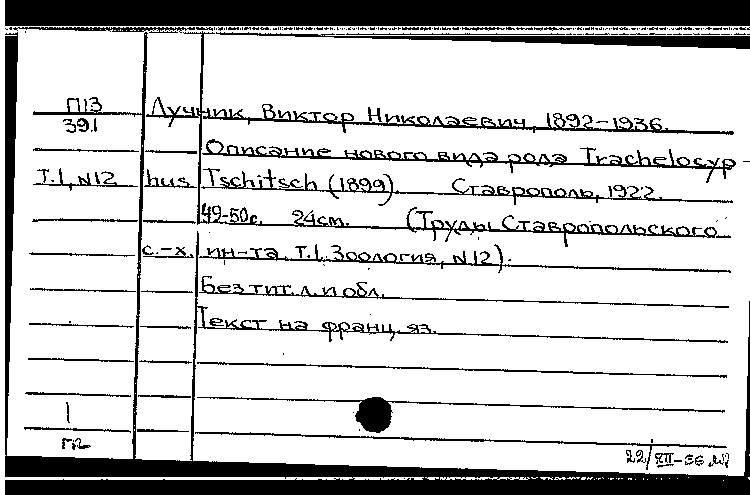 П13 Лучник, Виктор Николаевич, 1892-1936.
391
Описание нового вида рода Trachelocyp-
Т.1, N12 hus Tschitsch (1899). Ставрополь, 1922.
49-50с. 24cm. (Труды Ставропольского
с.-х. ин-та. Т.1, Зоология, N12).
Без тит. л. и обл.
Текст на франц. яз.
1
22/XII-36